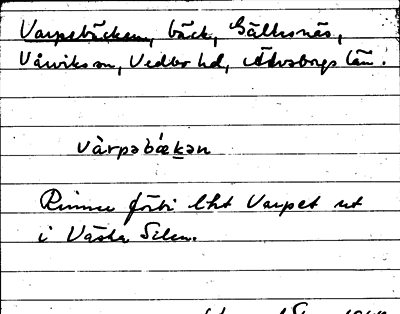 Varpebäcken, bäck, Gällsnäs,
Vårviks sn, Vedbo hd, Älvsborgs län.
vàrpəbǽkən
Rinner förbi lht Varpet ut
i Västra Silen.